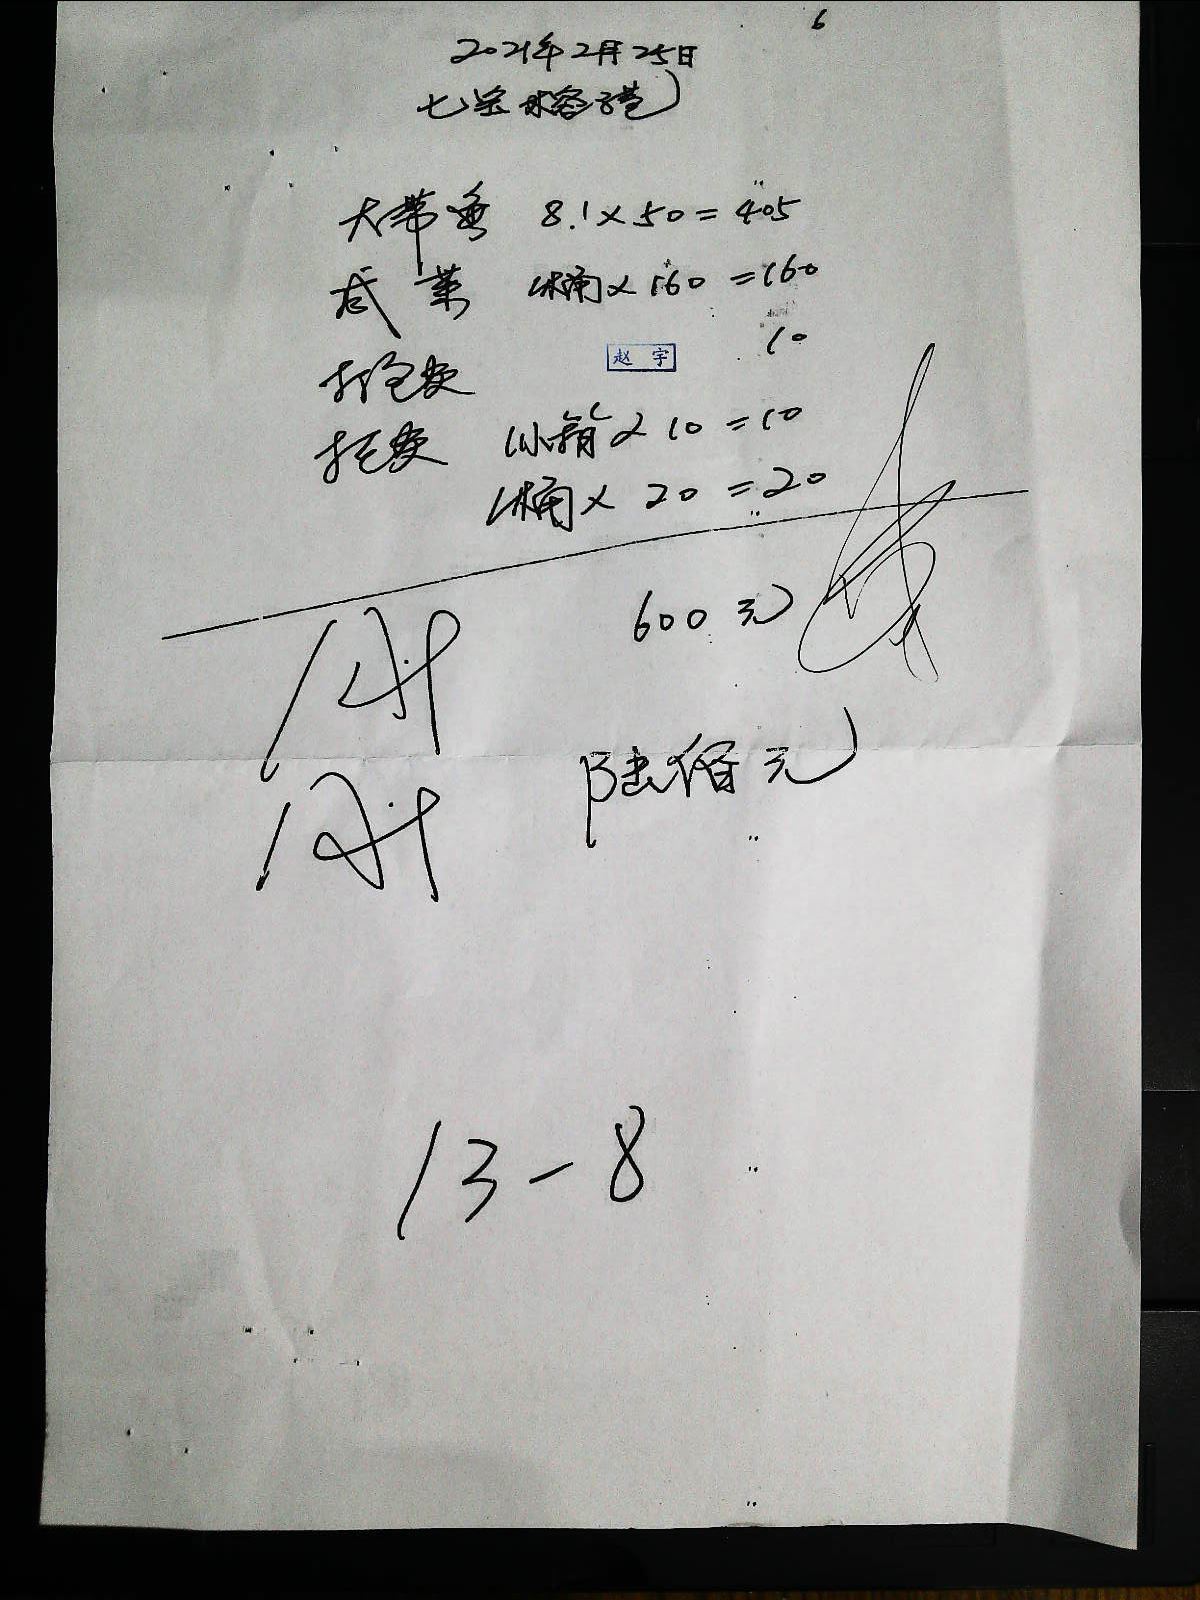 6
2021年2月25日
大带鱼 8.1×50=405
咸菜 1桶×160=160
打包费 10
赵宇
托费 1小箱×10=10
1桶×20=20
600元
陆佰元
13-8